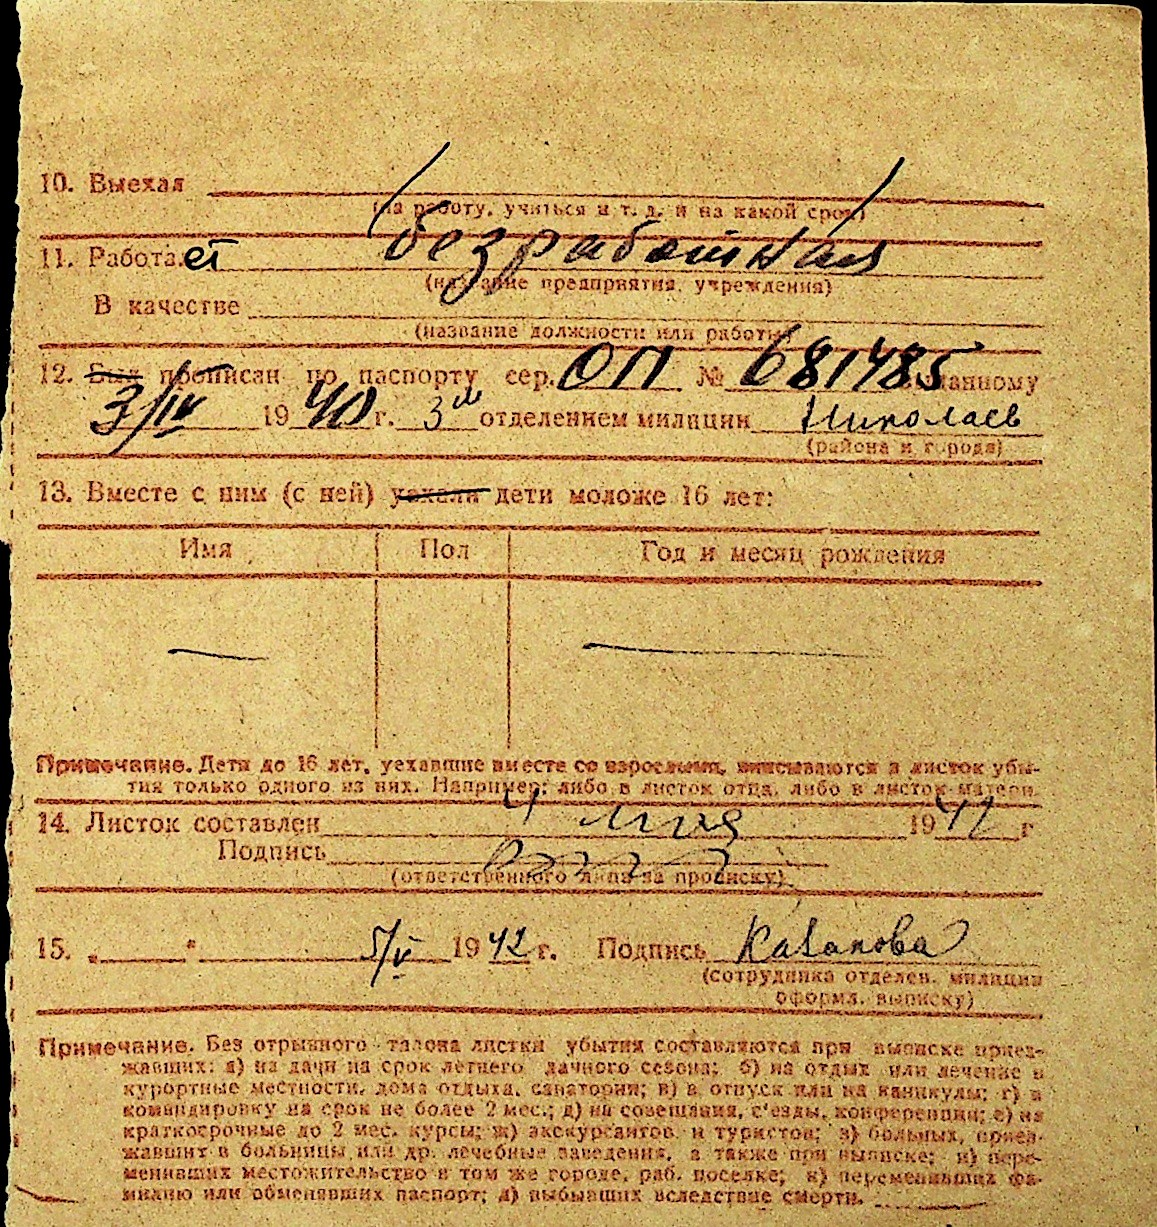 10. Выехал
(на работу, учиться и т. д. и на какой срок)
11. Работает безработная
(название предприятия, учреждения)
В качестве
(название должности или работы)
12. Был прописан по паспорту сер. ОП № 681485 выданному
3/IV 1940 г. 3м отделением милиции Николаев
(района и города)
13. Вместе с ним (с ней) уехали дети моложе 16 лет:
Имя Пол Год и месяц рождения
— —
Примечание. Дети до 16 лет, уехавшие вместе со взрослыми, вписываются в листок убы-
тия только одного из них. Например: либо в листок отца, либо в листок матери.
14. Листок составлен 4 мая 1942 г
Подпись
(ответственного лица за прописку)
15. „ " 5/V 1942 г. Подпись
(сотрудника отделен. милиции
оформл. выписку)
Примечание. Без отрывного талона листки убытия составляются при выписке приез-
жавших: а) на дачи на срок летнего дачного сезона; б) на отдых или лечение в
курортные местности, дома отдыха, санатории; в) в отпуск или на каникулы; г) в
командировку на срок не более 2 мес.; д) на совещания, с'езды, конференции; е) на
краткосрочные до 2 мес. курсы; ж) экскурсантов и туристов; з) больных, приез-
жавших в больницы или др. лечебные заведения, а также при выписке; и) пере-
менивших местожительство в том же городе, раб. поселке; к) переменивших фа-
милию или обменявших паспорт; л) выбывших вследствие смерти.